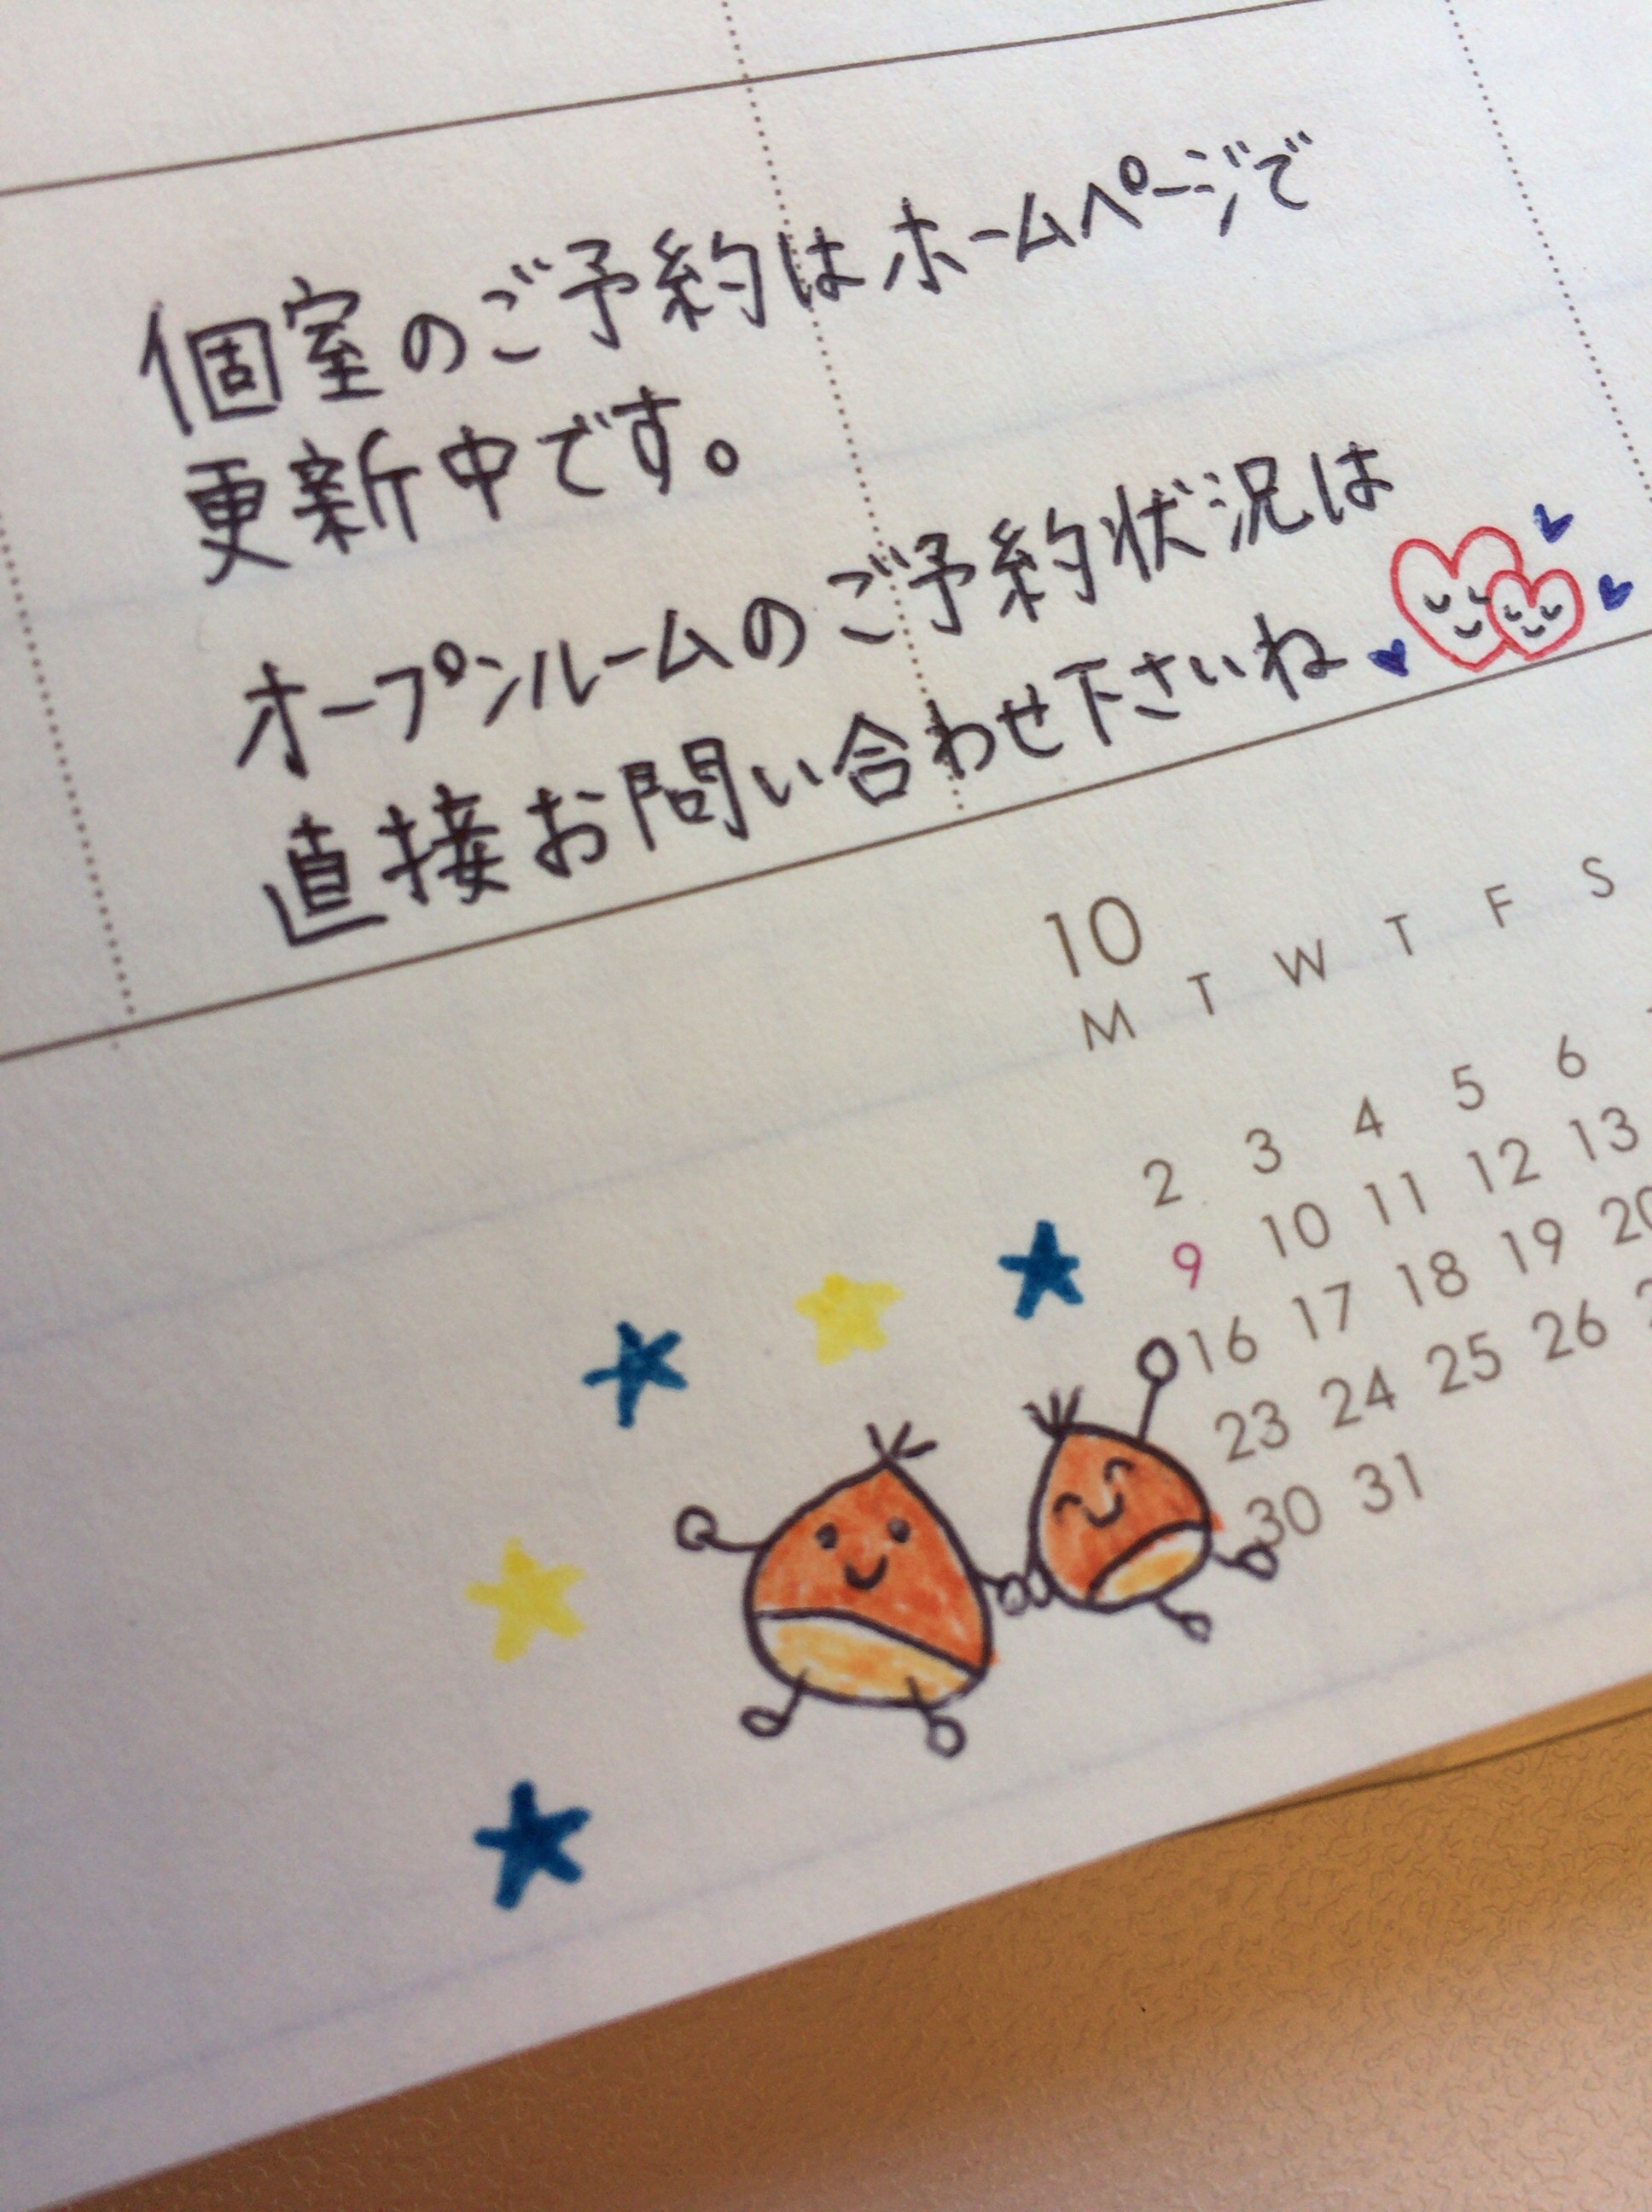 個室のご予約はホームページで
更新中です。
オープンルームのご予約状況は
直接お問い合わせ下さいね
10
M T W T F S
2 3 4 5 6
9 10 11 12 13
16 17 18 19 20
23 24 25 26
30 31